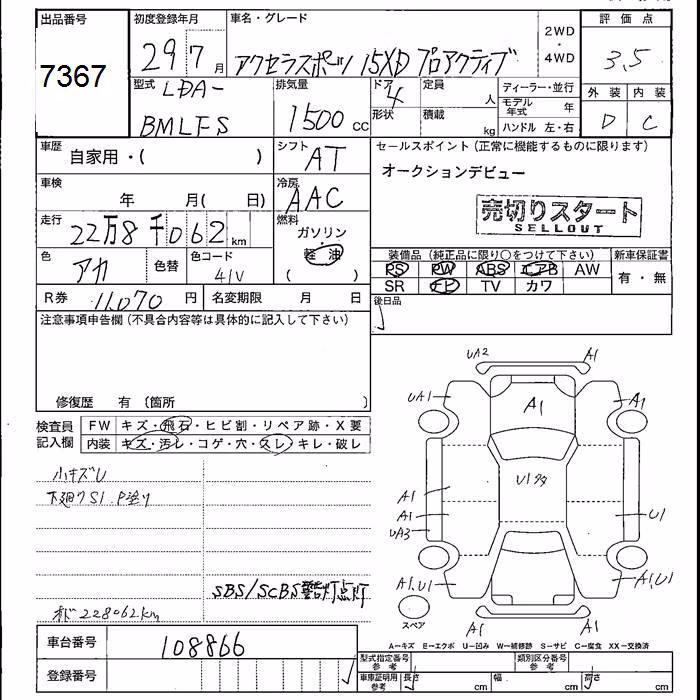 出品番号
7367
初度登録年月
29年7月
車名・グレード
アクセラスポーツ 15XD プロアクティブ
2WD
・
4WD
評価点
3.5
型式
LDA-
BM LFS
排気量
1500 cc
ドア
4
形状
定員
人
積載
kg
ディーラー・並行
モデル年式 年
ハンドル 左・右
外装 内装
D C
車歴
自家用・( )
シフト
AT
セールスポイント (正常に機能するものに限ります)
オークションデビュー
車検
年 月( 日)
冷房
AAC
売切りスタート
SELLOUT
走行
22万8千062km
燃料
ガソリン
軽油
( )
色
アカ
色替
色コード
41V
装備品 (純正品に限り○をつけて下さい)
新車保証書
PS PW ABS エアB AW
SR ナビ TV カワ
有・無
R券
11,070 円
名変期限 月 日
後日品
注意事項申告欄 (不具合内容等は具体的に記入して下さい)
修復歴 有 〔箇所 〕
検査員
記入欄
FW キズ・飛石・ヒビ割・リペア跡・X要
内装 キズ・汚レ・コゲ・穴・スレ・キレ・破レ
小キズU
下廻りS1.P塗り
SBS/SCBS警告灯点灯
オド228062km
UA2 A1
UA1 A1 A1
U1多
A1
A1 U1
UA3
A1,U1 A1,U1
スペア
A1 A1
A=キズ E=エクボ U=凹み W=補修跡 S=サビ C=腐食 XX=交換済
車台番号
108866
登録番号
型式指定番号
参考
類別区分番号
参考
車庫証明用
参考
長さ cm 幅 cm 高さ cm